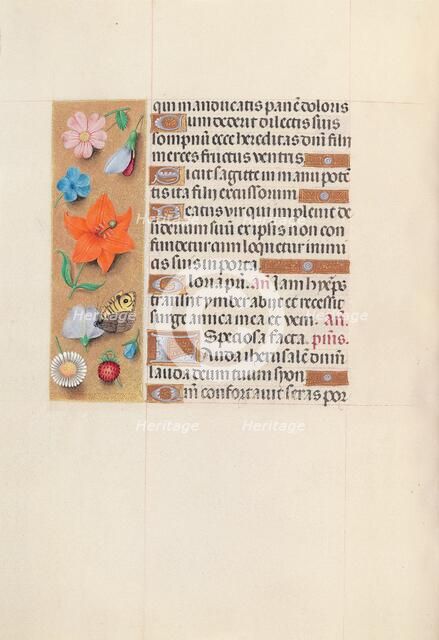 qui manducatis panē doloris
Cum dederit dilectis suis
sompnū ecce hereditas dn̄i filii
merces fructus ventris
Sicut sagitte in manu potē
tis ita filii excussorum
Beatus vir qui implevit de
siderium suū ex ipsis non con
fundetur cum loquetur inimi
cis suis in porta
Gloria p̄ri. an̄ Iam hyēps
transiit ymber abijt et recessit
surge amica mea et veni. an̄.
Speciosa facta. p̄us.
Lauda iherusalē dn̄m
lauda deum tuum syon
Qm̄ confortavit seras por
Heritage Heritage
Heritage Heritage
Heritage Heritage